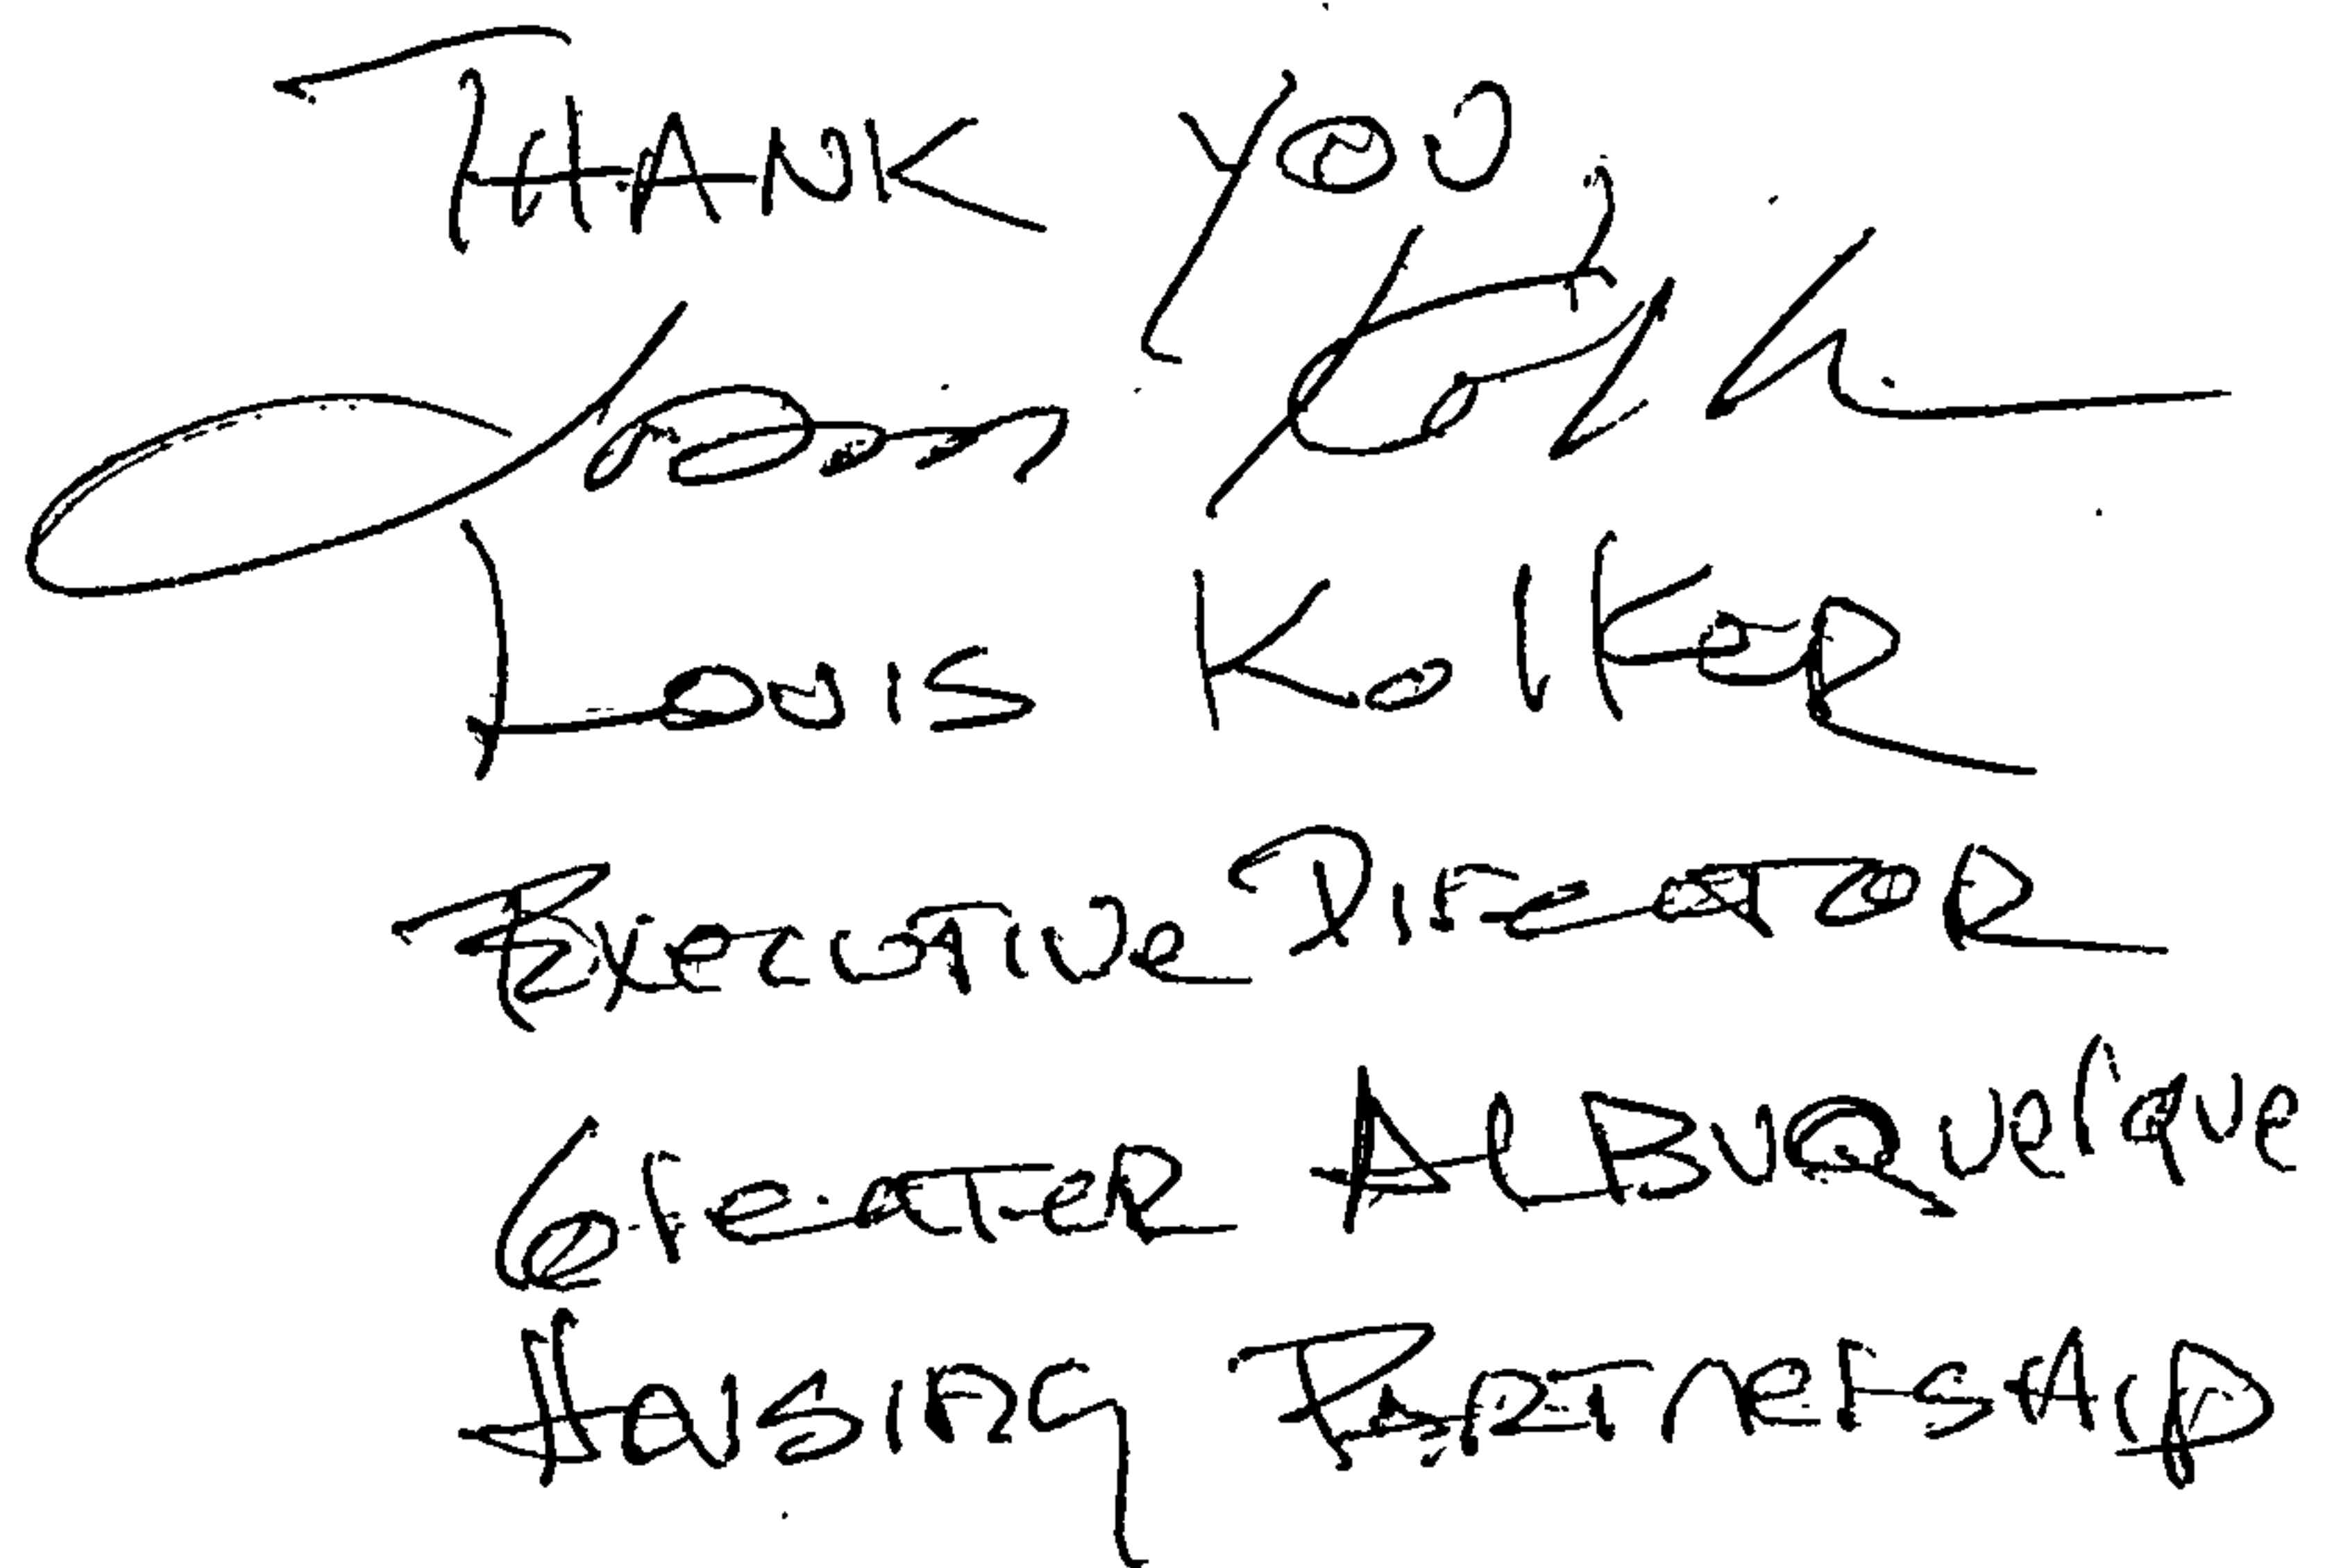 THANK YOU,
Louis Kolker
Executive Director
Greater Albuquerque
Housing Partnership